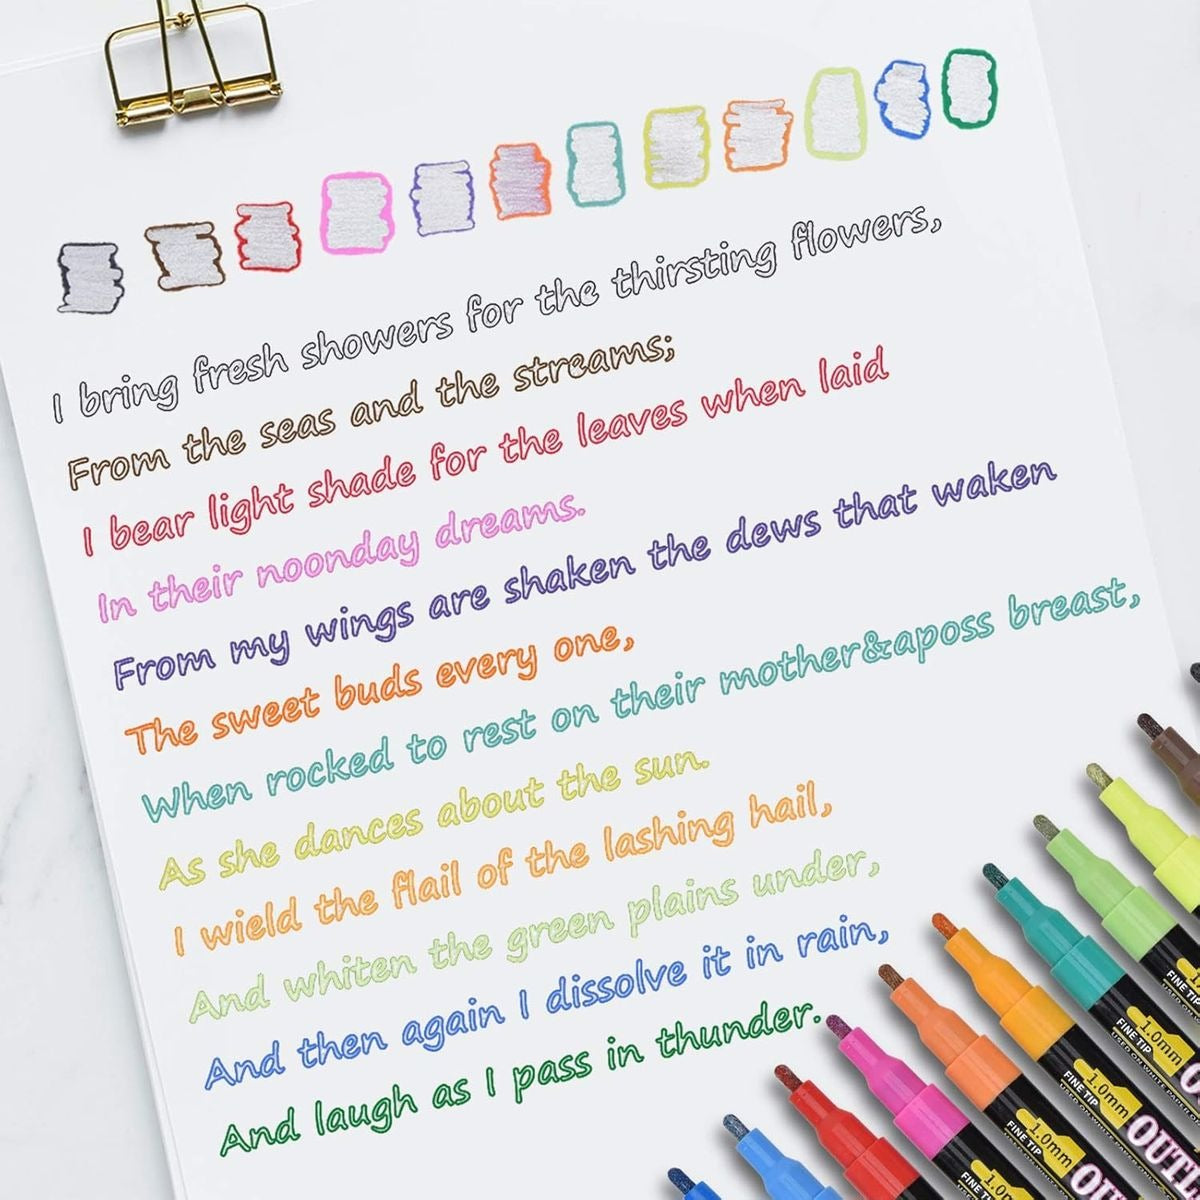 I bring fresh showers for the thirsting flowers,
From the seas and the streams;
I bear light shade for the leaves when laid
In their noonday dreams.
From my wings are shaken the dews that waken
The sweet buds every one,
When rocked to rest on their mother&aposs breast,
As she dances about the sun.
I wield the flail of the lashing hail,
And whiten the green plains under,
And then again I dissolve it in rain,
And laugh as I pass in thunder.
FINE TIP
1.0mm
FINE TIP
1.0mm
FINE TIP
1.0mm
FINE TIP
FINE TIP